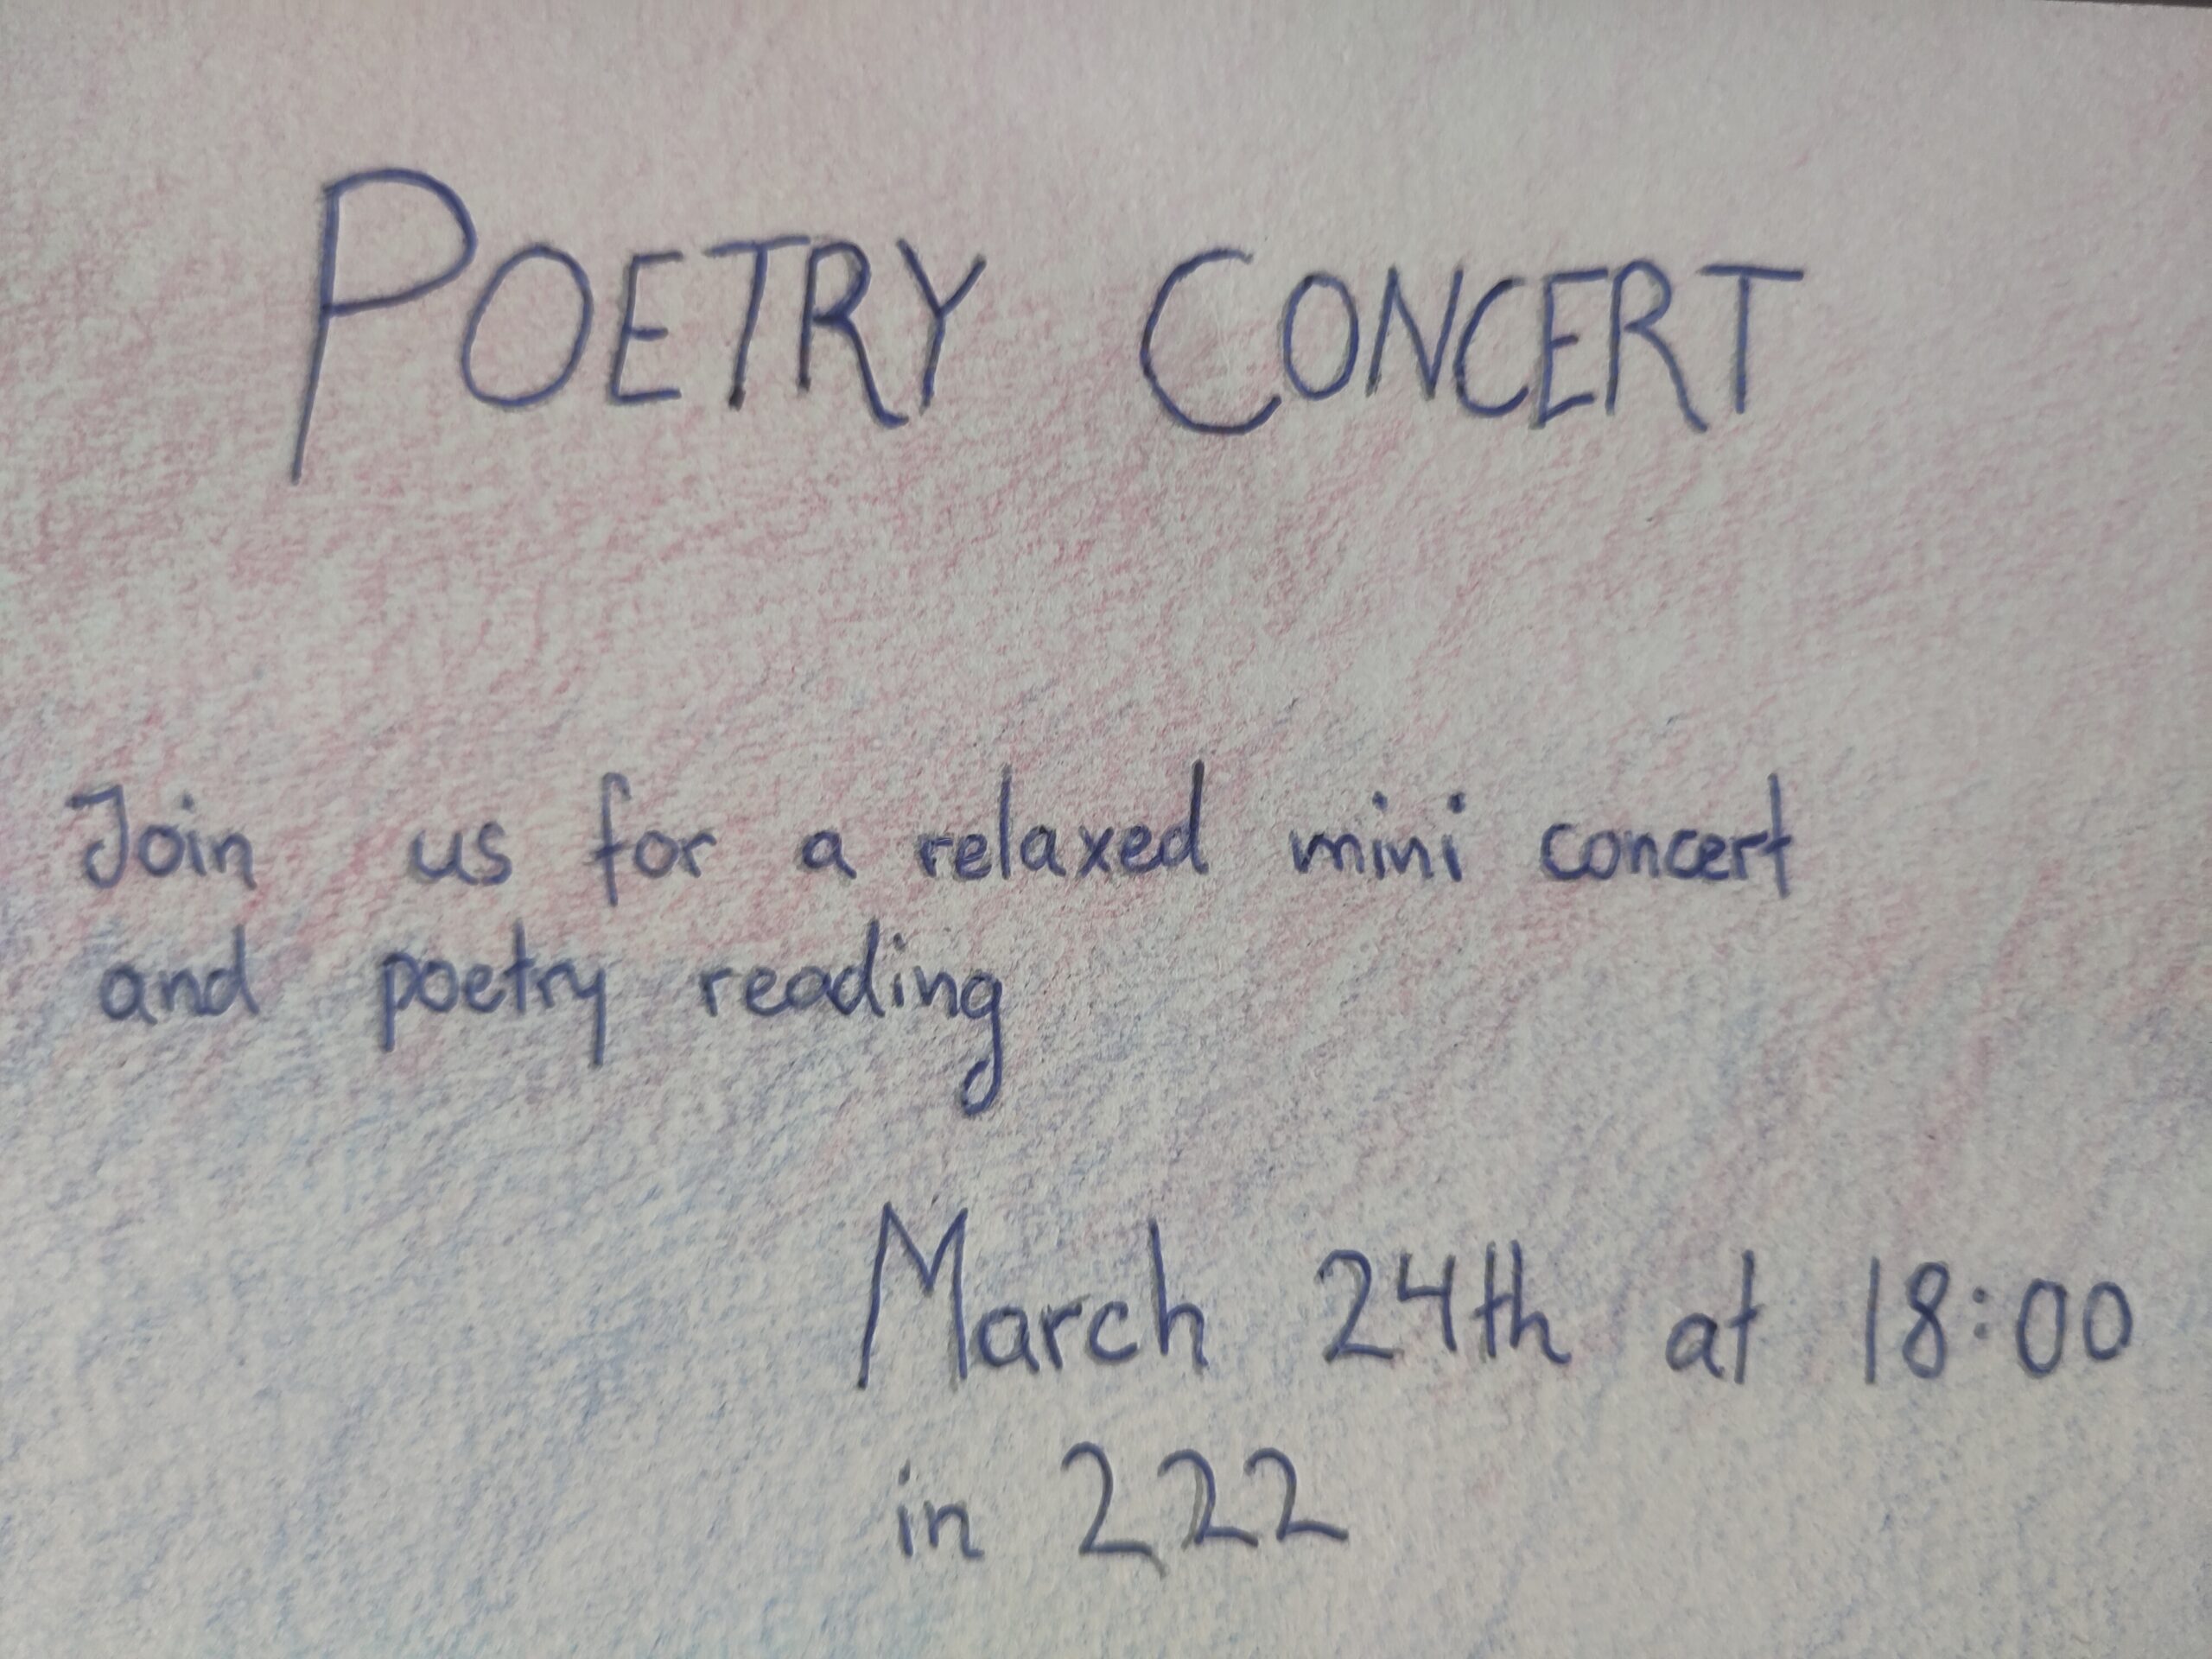 POETRY CONCERT
Join us for a relaxed mini concert
and poetry reading
March 24th at 18:00
in 222